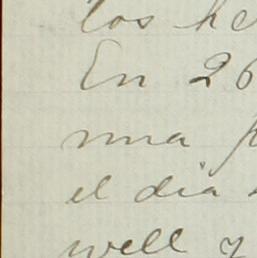 los he
En 26
una p
el dia
well y